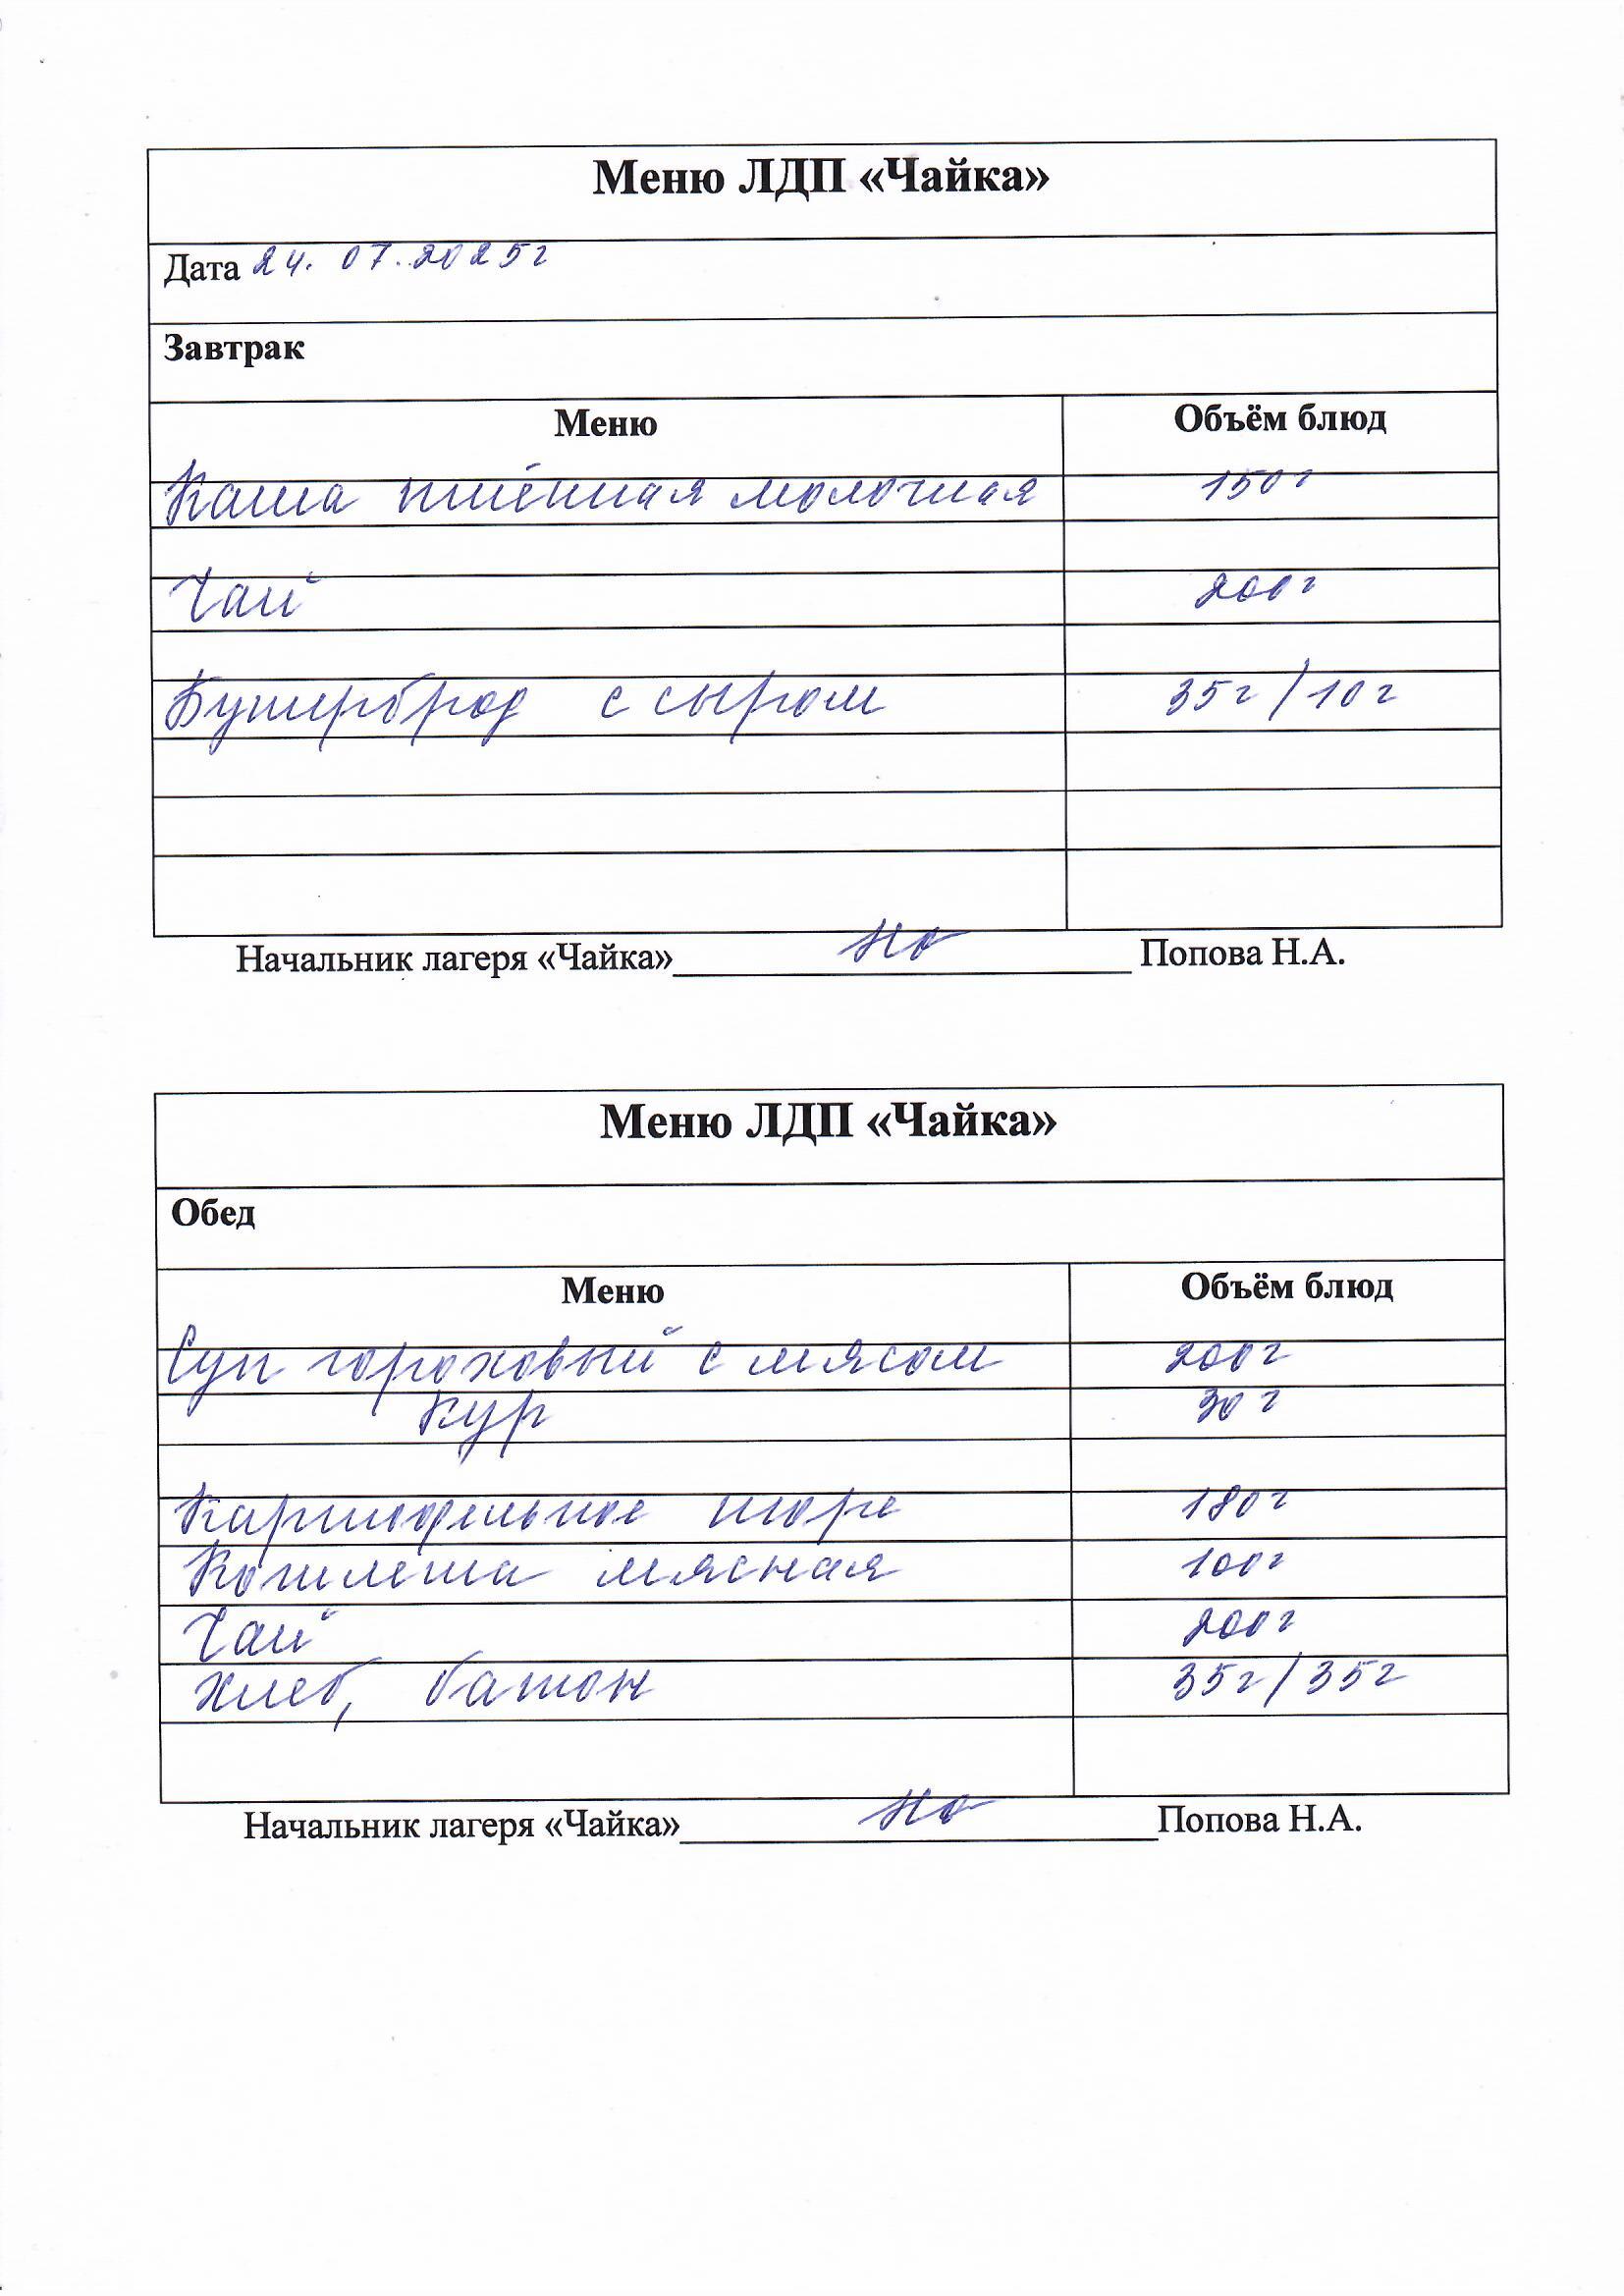 Меню ЛДП «Чайка»
Дата 24. 07. 2025г
Завтрак
Меню Объём блюд
Каша пшённая молочная 150г
Чай 200г
Бутерброд с сыром 35г/10г
Начальник лагеря «Чайка» Попова Н.А.
Меню ЛДП «Чайка»
Обед
Меню Объём блюд
Суп гороховый с мясом 200г
кур 30г
Картофельное пюре 180г
Котлета мясная 100г
Чай 200г
Хлеб, батон 35г/35г
Начальник лагеря «Чайка» Попова Н.А.